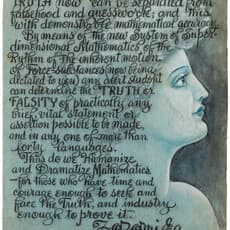 TRUTH now can be separated from
falsehood and guesswork; and this
with demonstrable mathematical accuracy.
By means of the new System of Super-
dimensional Mathematics of the
Rythm of the inherent motion
of Force-substances now being
dictated to you, any adept student
can determine the TRUTH or
FALSITY of practically any
brief, vital statement or
assertion possible to be made,
and in any one of more than
forty languages.
This do we Humanize
and Dramatize Mathematics
for those who have time and
courage enough to seek and
face the Truth, and industry
enough to prove it.